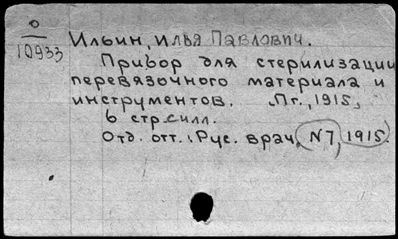 О
10933
Ильин, Илья Павлович.
Прибор для стерилизации
перевязочного материала и
инструментов. Пг., 1915,
6 стр. с илл.
Отд. отт.: Рус. врач, N7, 1915.